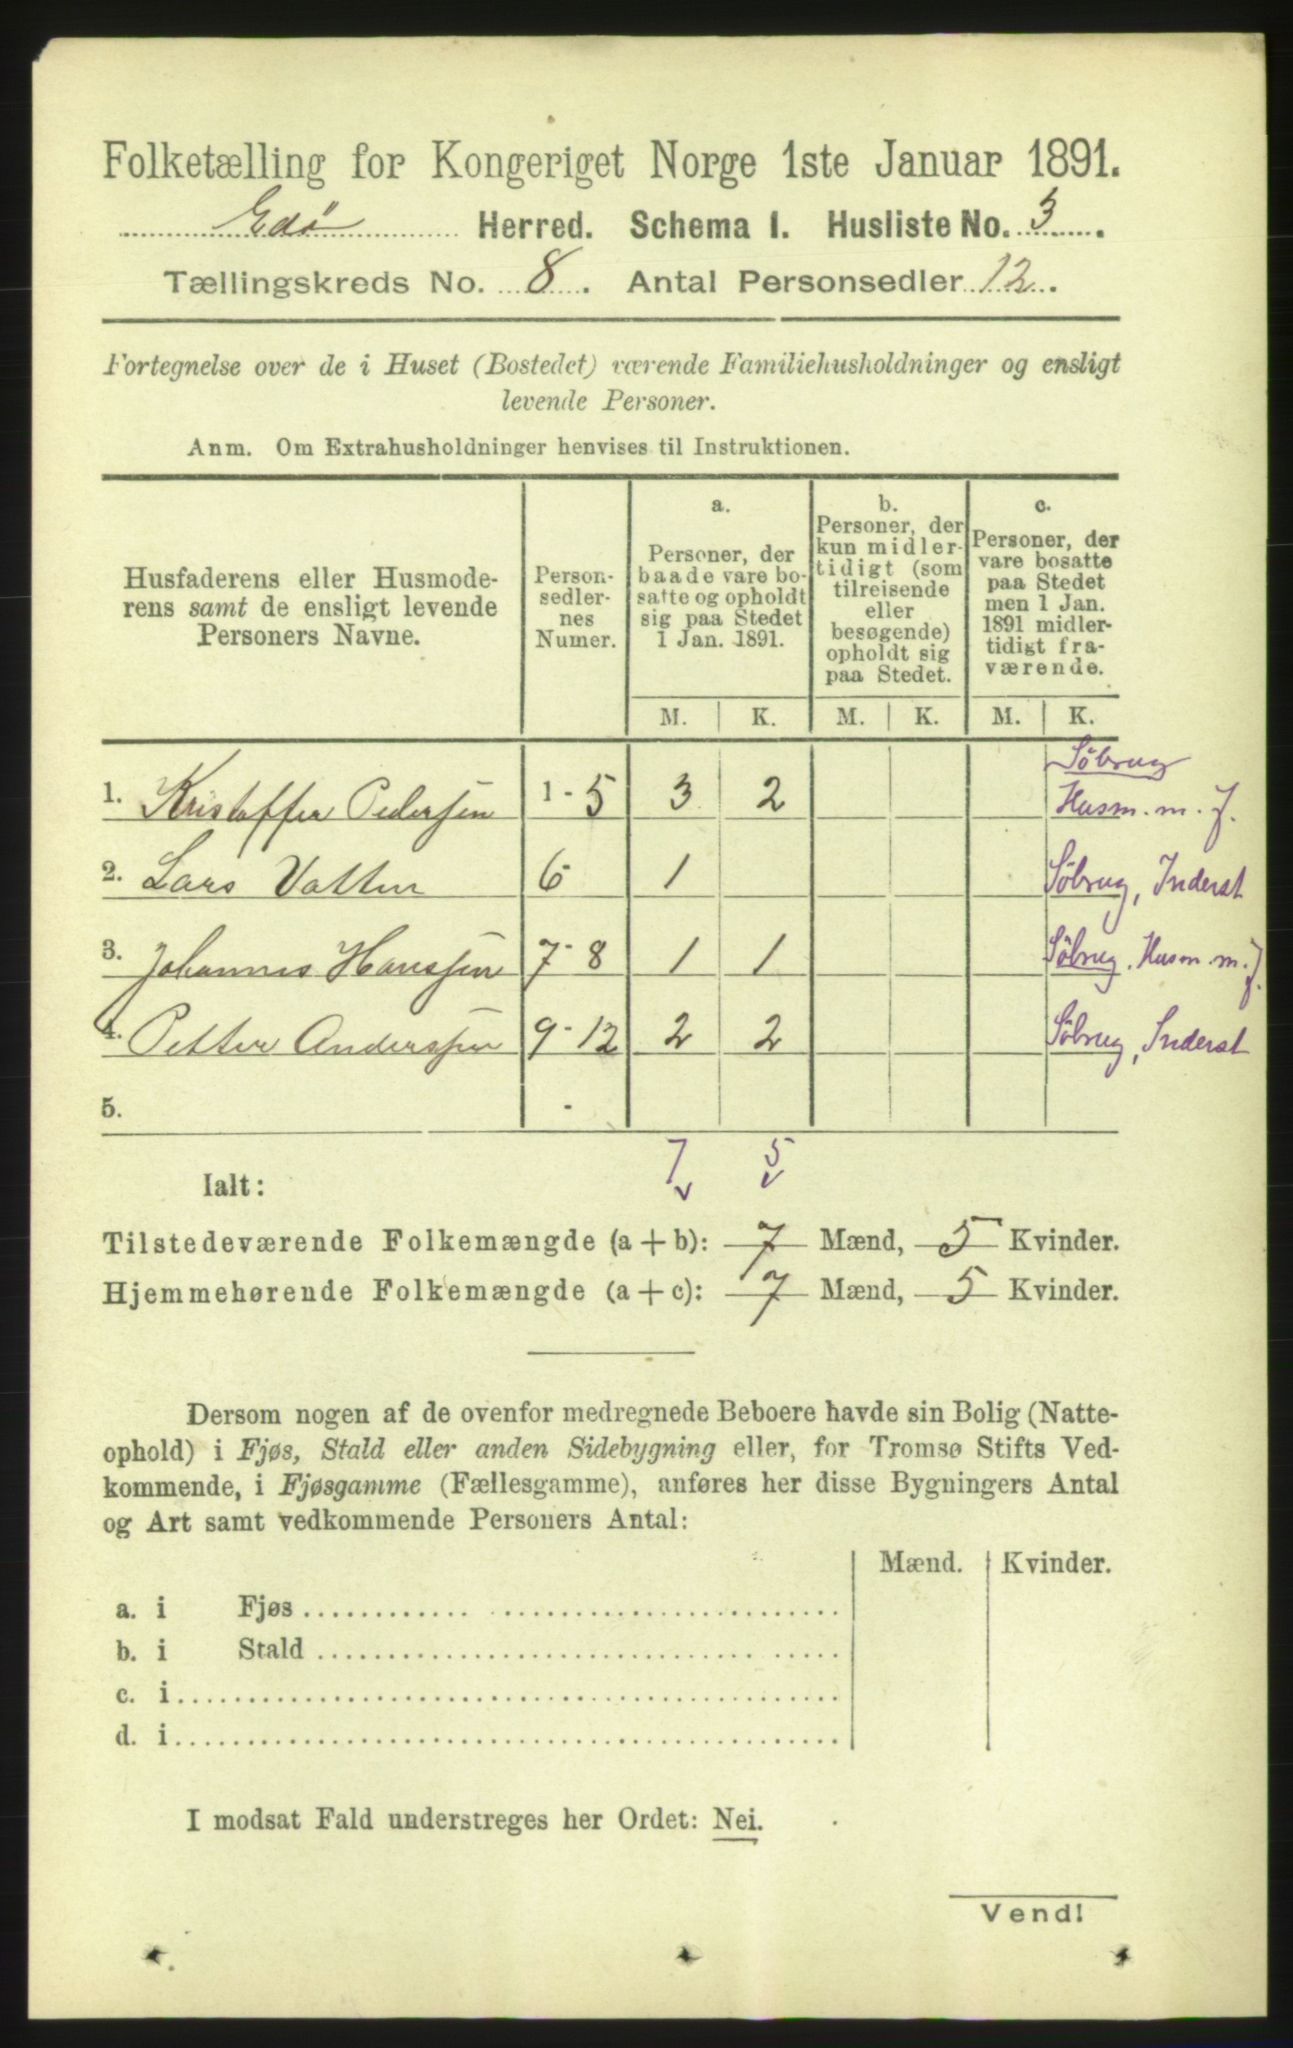 Folketælling for Kongeriget Norge 1ste Januar 1891.
Edø Herred. Schema I. Husliste No. 3.
Tællingskreds No. 8. Antal Personsedler 12.
Fortegnelse over de i Huset (Bostedet) værende Familiehusholdninger og ensligt
levende Personer.
Anm. Om Extrahusholdninger henvises til Instruktionen.
Husfaderens eller Husmode-
rens samt de ensligt levende
Personers Navne.
Person-
sedler-
nes
Numer.
a.
Personer, der
baade vare bo-
satte og opholdt
sig paa Stedet
1 Jan. 1891.
b.
Personer, der
kun midler-
tidigt (som
tilreisende
eller
besøgende)
opholdt sig
paa Stedet.
c.
Personer, der
vare bosatte
paa Stedet
men 1 Jan.
1891 midler-
tidigt fra-
værende.
M. K. M. K. M. K.
1. Kristoffer Pedersen 1 - 5 3 2 Söbrug
Husm. m. J.
2. Lars Vatten 6 - 1 Söbrug, Inderst
3. Johannes Hanssen 7 - 8 1 1 Söbrug. Husm. m. J.
4. Petter Anderssen 9 - 12 2 2 Söbrug, Inderst
5. -
7 5
Ialt:
Tilstedeværende Folkemængde (a + b): 7 Mænd, 5 Kvinder.
Hjemmehørende Folkemængde (a + c): 7 Mænd, 5 Kvinder.
Dersom nogen af de ovenfor medregnede Beboere havde sin Bolig (Natte-
ophold) i Fjøs, Stald eller anden Sidebygning eller, for Tromsø Stifts Ved-
kommende, i Fjøsgamme (Fællesgamme), anføres her disse Bygningers Antal
og Art samt vedkommende Personers Antal:
Mænd. Kvinder.
a. i Fjøs
b. i Stald
c. i
d. i
I modsat Fald understreges her Ordet: Nei.
Vend!